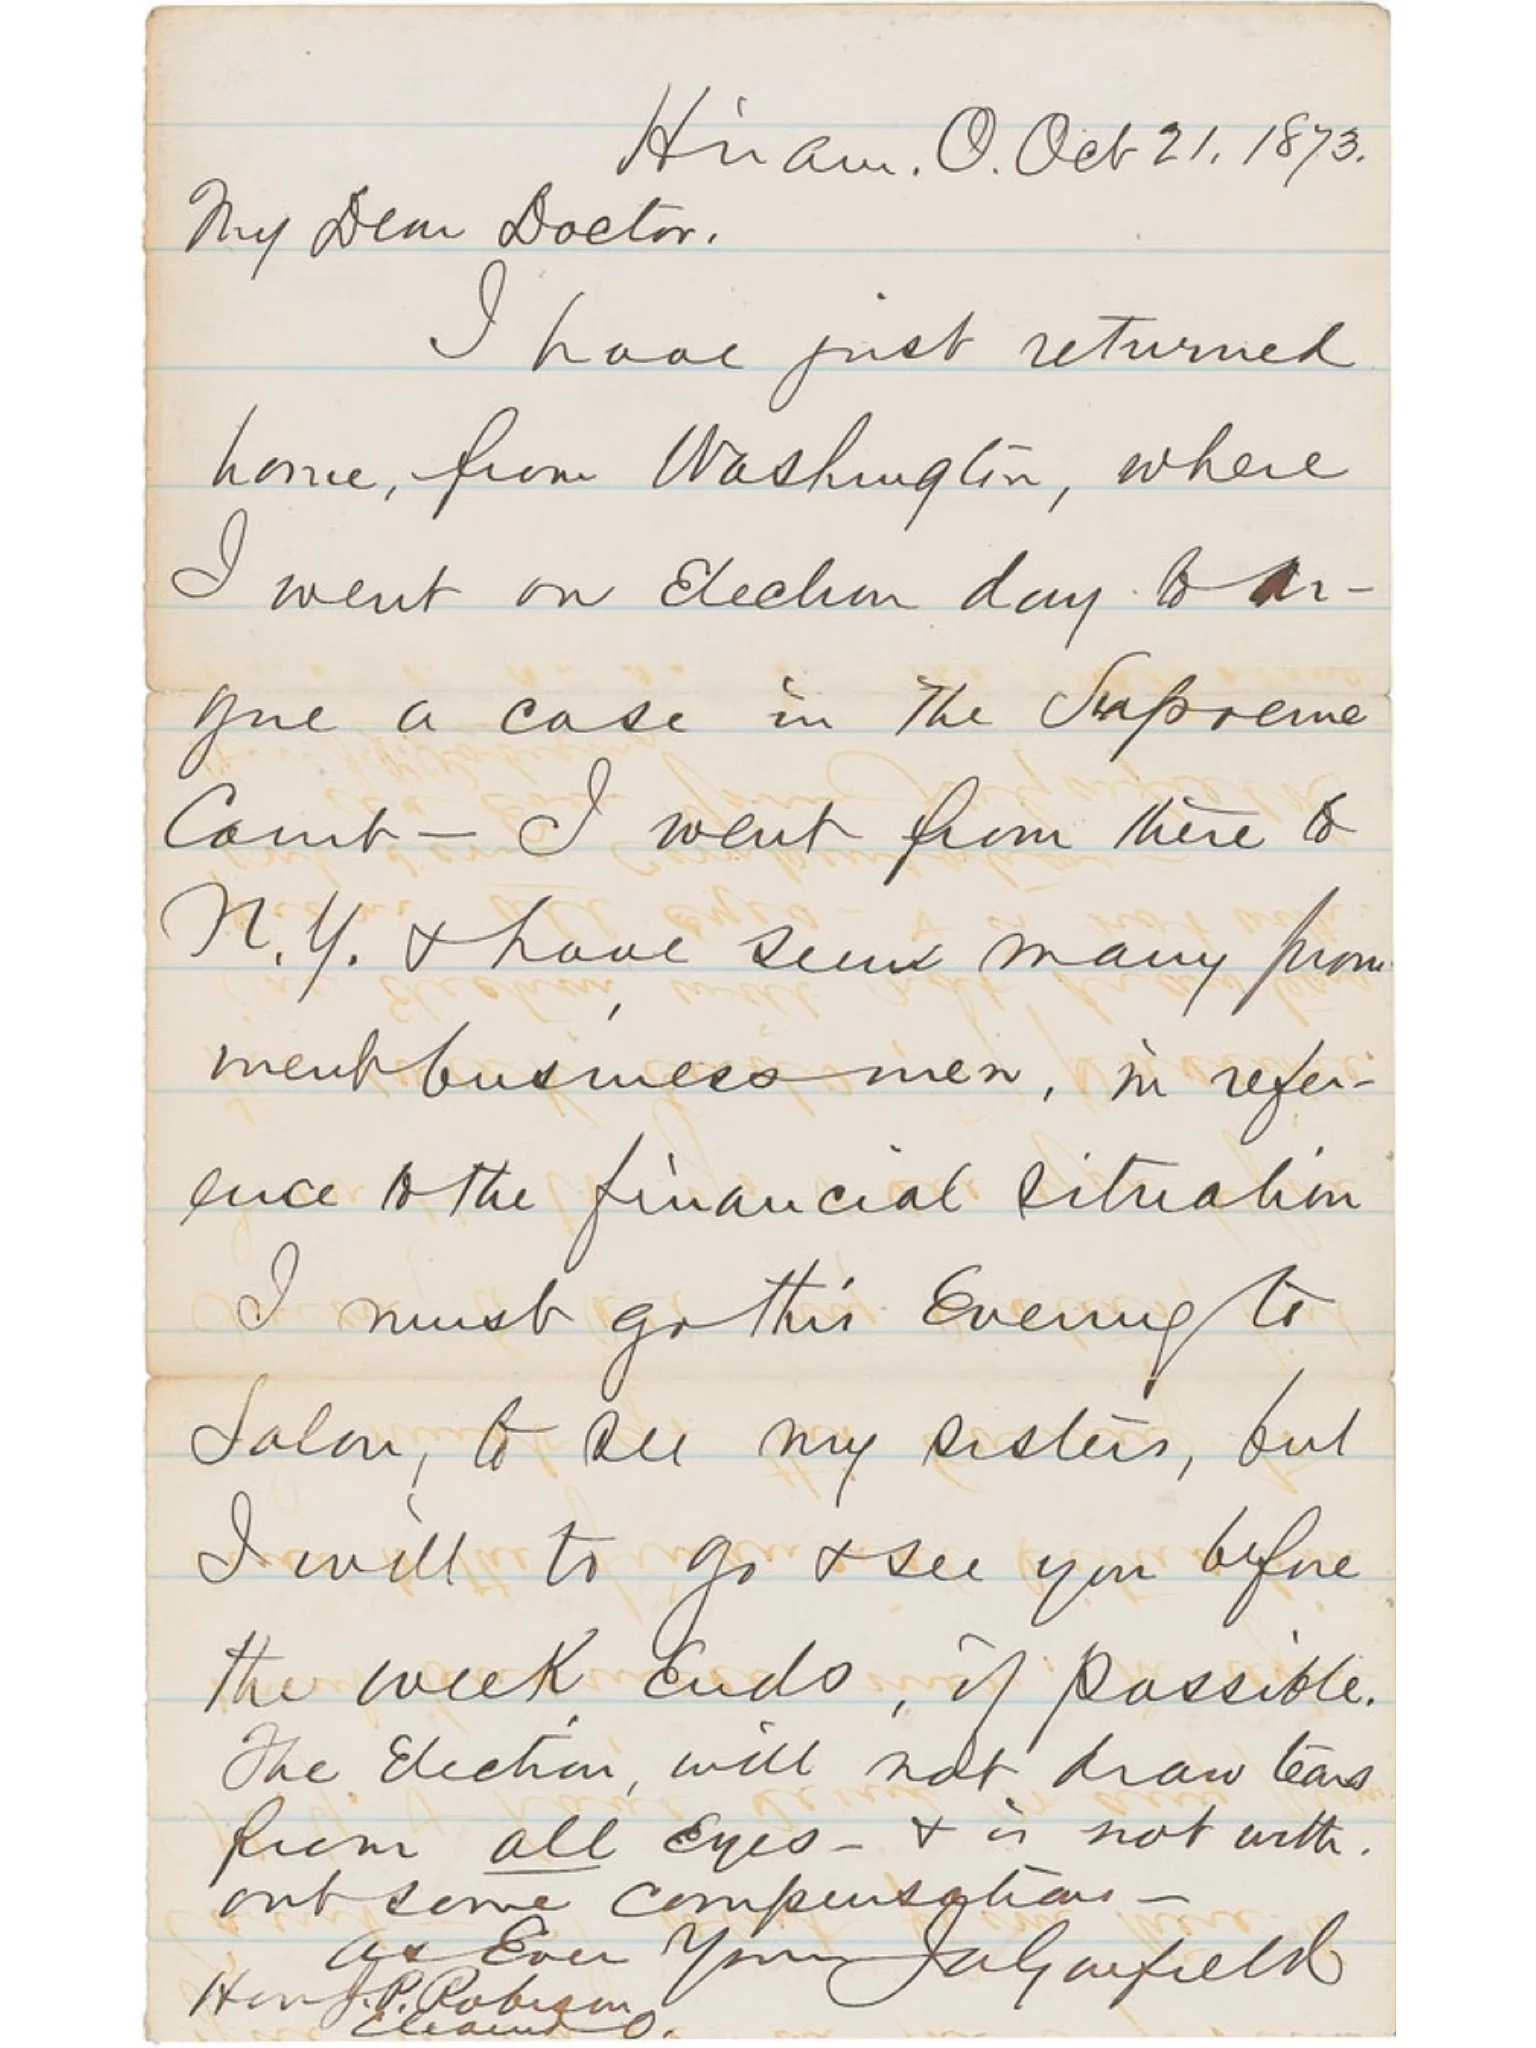 Hiram. O. Oct 21. 1873.
My Dear Doctor.
I have just returned
home, from Washington, where
I went on Election day to ar-
gue a case in the Supreme
Court — I went from there to
N.Y. & have seen many prom
inent business men, in refer-
ence to the financial situation
I must go this Evening to
Solon, to see my sisters, but
I will to go & see you before
the week Ends, if possible.
The Election, will not draw tears
from all Eyes — & is not with.
out some compensations —
as Ever Yours JAGarfield
Hon J. P. Robison
Cleaveland O.